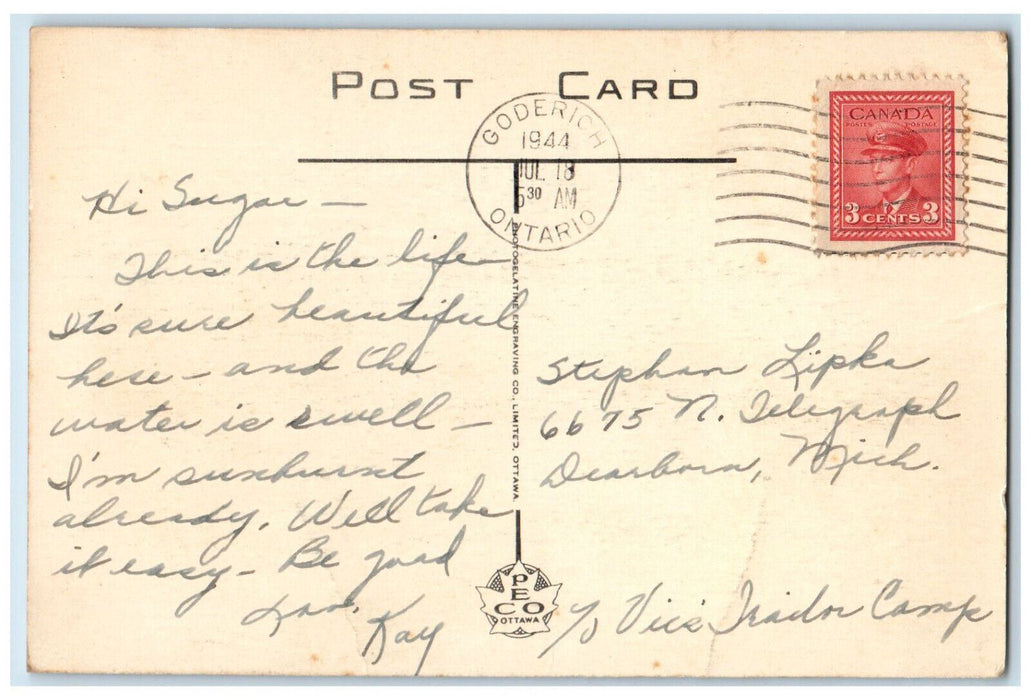 POST CARD
GODERICH
1944
JUL 18
5 30 AM
ONTARIO
CANADA
POSTES POSTAGE
3 CENTS 3
Hi Sugar —
This is the life
It's sure beautiful
here — and the
water is swell —
I'm sunburnt
already. Well take
it easy — Be good
Kay
PHOTOGELATINE ENGRAVING CO., LIMITED, OTTAWA.
Stephan Lipka
6675 N. Telegraph
Dearborn, Mich.
c/o Vic's Trailor Camp
PECO
OTTAWA